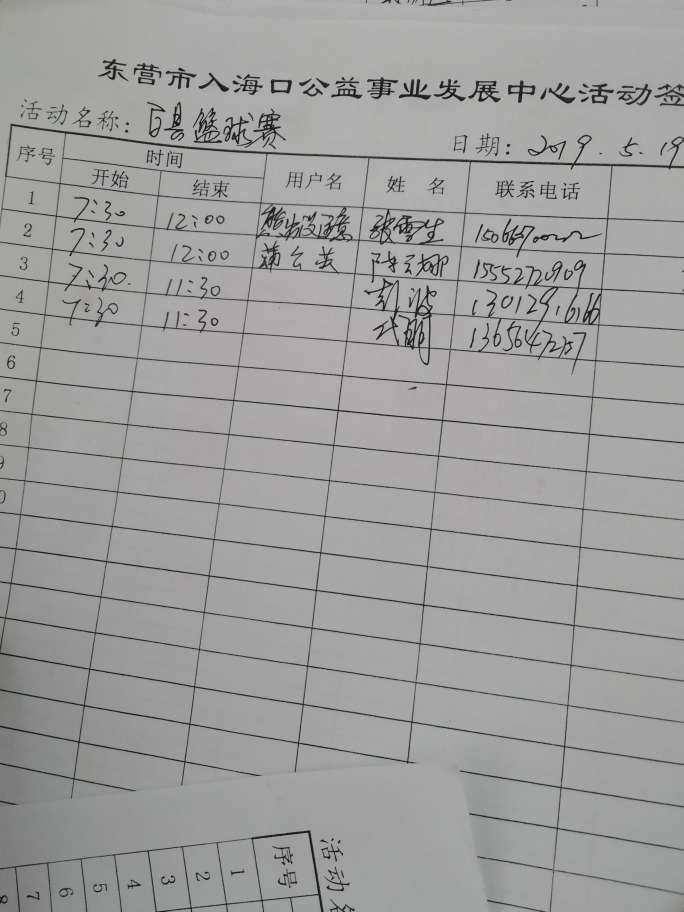 东营市入海口公益事业发展中心活动签
活动名称: 百县篮球赛 日期: 2019.5.19
序号 时间 用户名 姓名 联系电话
开始 结束
1 7:30 12:00 张雪生
2 7:30 12:00 蒲公英 15552720909
3 7:30 11:30 彭波 13012916166
4 7:30 11:30
5
6
7
8
9
0
活动名
序号 1 2 3 4 5 6 7 8